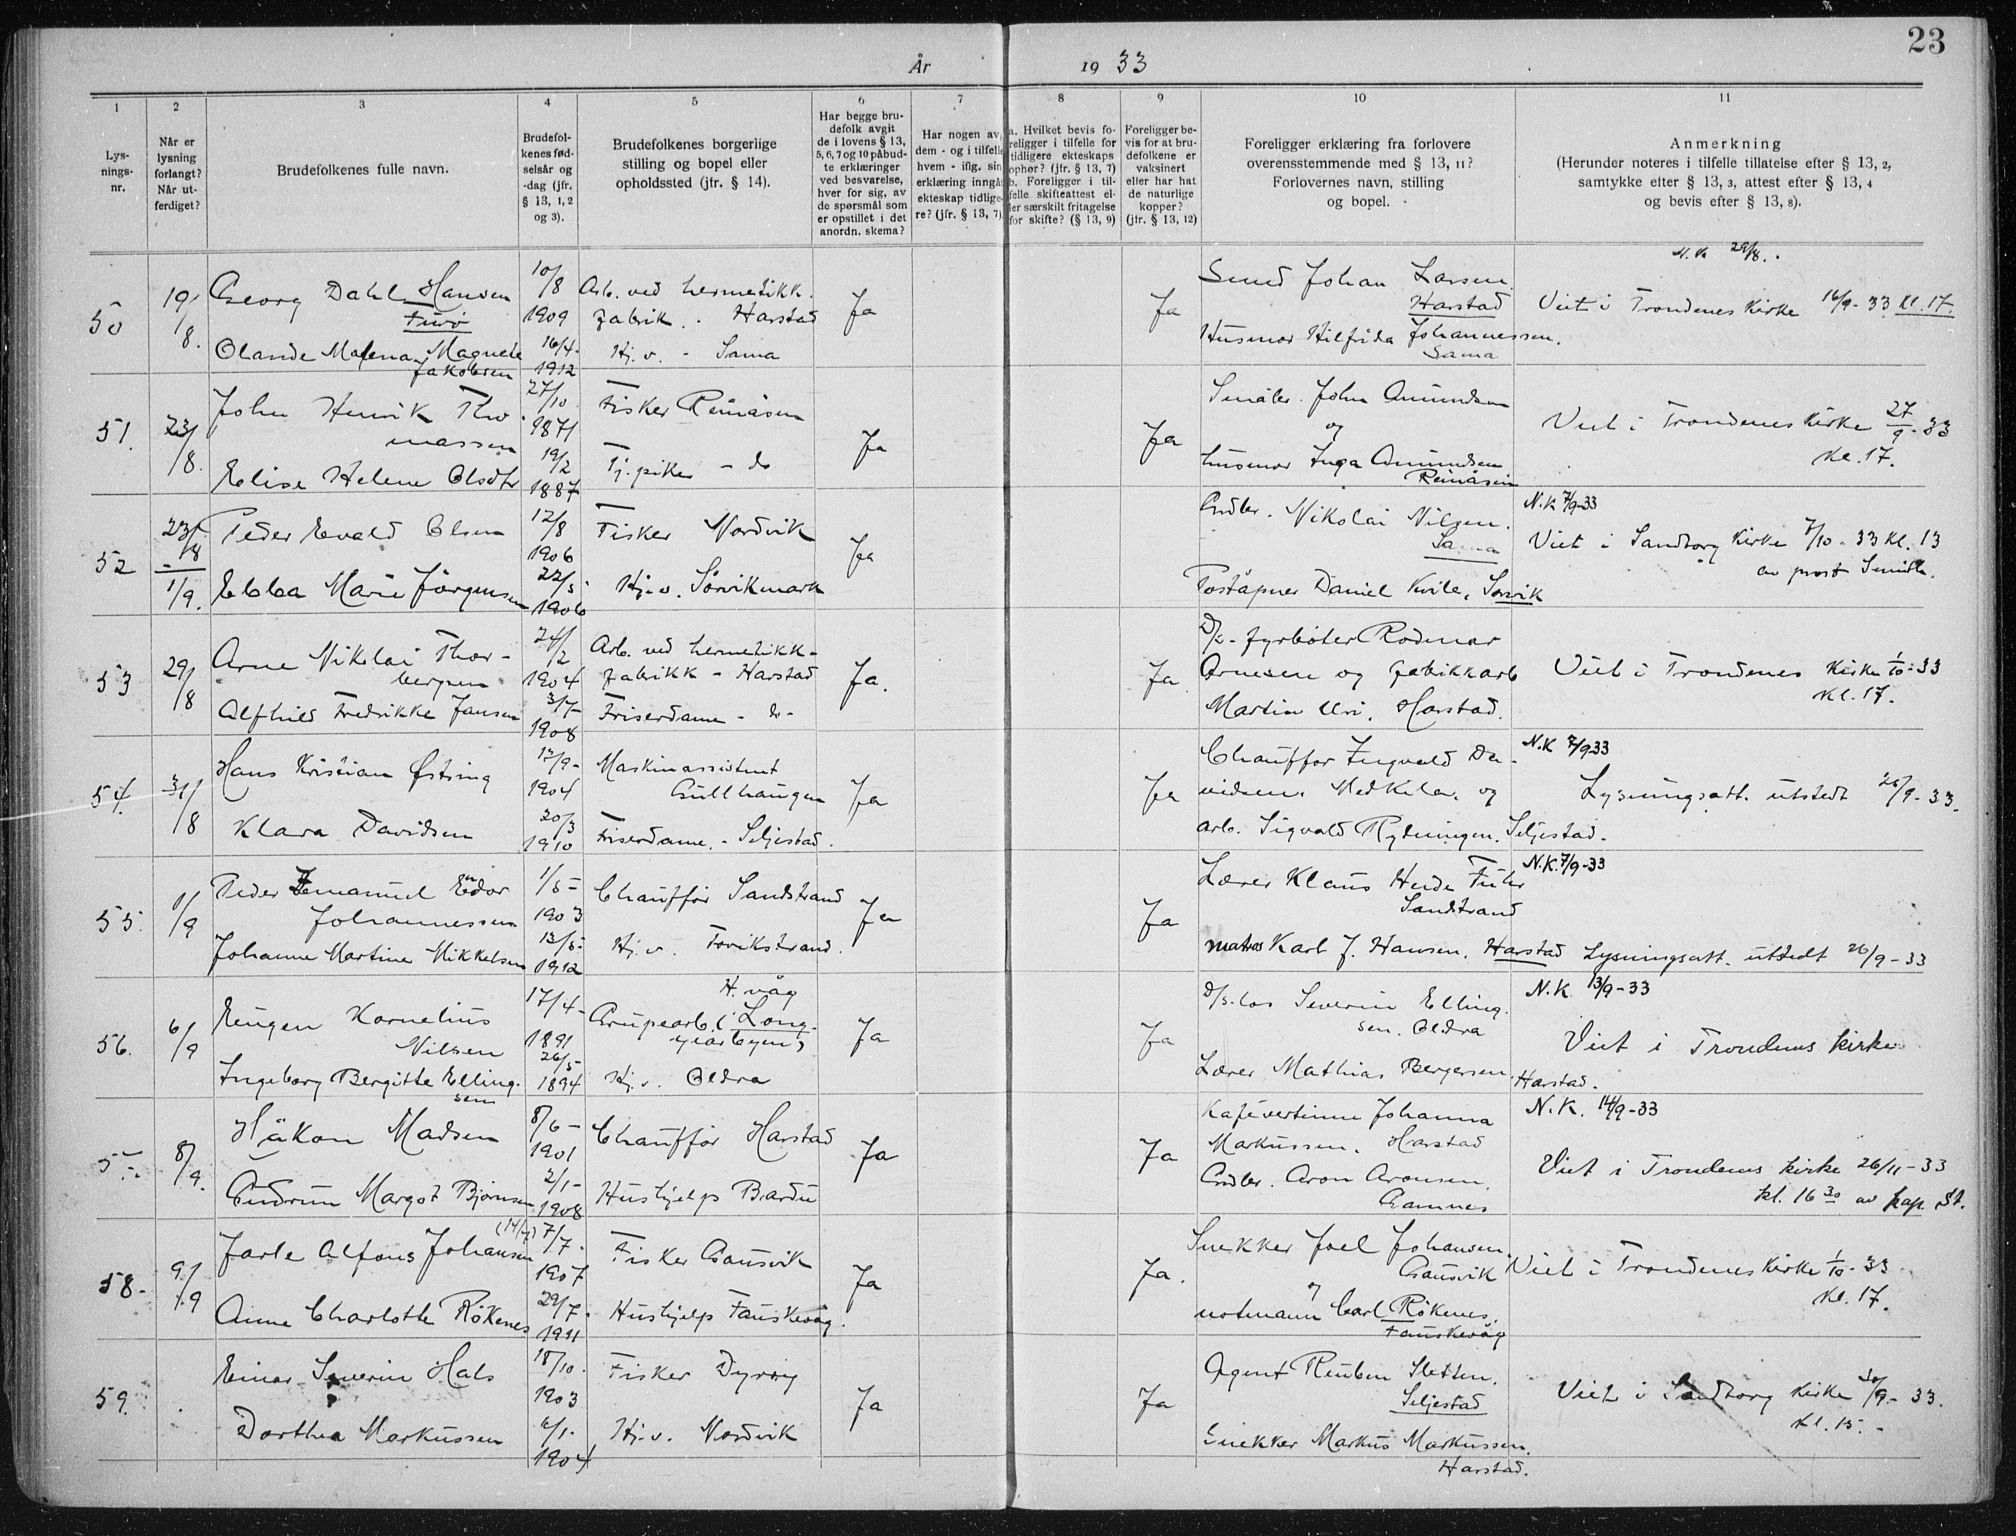 23
År 1933
1 2 3 4 5 6 7 8 9 10 11
Lys-
nings-
nr.
Når er
lysning
forlangt?
Når ut-
ferdiget?
Brudefolkenes fulle navn.
Brudefol-
kenes fød-
selsår og
-dag (jfr.
§ 13, 1, 2
og 3).
Brudefolkenes borgerlige
stilling og bopel eller
opholdssted (jfr. § 14).
Har begge bru-
defolk avgit
de i lovens § 13,
5, 6, 7 og 10 påbud-
te erklæringer
ved besvarelse,
hver for sig, av
de spørsmål som
er opstillet i det
anordn. skema?
Har nogen av
dem - og i tilfelle
hvem - iflg. sin
erklæring inngåt
ekteskap tidlige-
re? (jfr. § 13, 7)
a. Hvilket bevis fo-
religger i tilfelle for
tidligere ekteskaps
ophør? (jfr. § 13, 7)
b. Foreligger i til-
felle skifteattest el-
ler særskilt fritagelse
for skifte? (§ 13, 9)
Foreligger be-
vis for at bru-
defolkene er
vaksinert
eller har hat
de naturlige
kopper?
(jfr. § 13, 12)
Foreligger erklæring fra forlovere
overensstemmende med § 13, 11?
Forlovernes navn, stilling
og bopel.
Anmerkning
(Herunder noteres i tilfelle tillatelse efter § 13, 2,
samtykke efter § 13, 3, attest efter § 13, 4
og bevis efter § 13, 8).
50
19/
8.
Georg Dahl Hansen
Olande Malena Magnete
Jakobsen
10/8
1909
16/4-
1912
Arb. ved hermetikk.
fabrik. - Harstad
Hj.v. - Sama
Ja
Ja
Smed Johan Larsen.
Harstad
Husmor Hilfrida Johannessen.
Sama
N.K 29/8.
Viet i Trondenes Kirke 16/9-33 Kl. 17.
51.
23/
8.
John Henrik Tho-
massen
Elise Helene Olsdtr
27/10
1871
19/2
1887
Fisker Renåsen
Tj.pike - do
Ja
Ja
Småbr. John Amundsen
og
husmor Inga Amundsen
Renåsen
Viet i Trondenes Kirke 27/9-33
Kl. 17.
52
23/8
1/9.
Peder Evald Olsen
Ebba Marie Jørgensen
12/8
1906
22/5-
1906
Fisker Nordvik
Hj.v. Sørvikmark
Ja
Grdbr. Nikolai Nilsen.
Sama
Poståpner Daniel Kvile, Sørvik
N.K 7/9-33
Viet i Sandtorg Kirke 7/10-33 Kl. 13
av prost Smith.
53
29/
8
Arne Nikolai Thor-
bergsen
Alfhild Fredrikke Jansen
24/2
1904
3/7-
1908
Arb. ved hermetikk-
fabrikk - Harstad
Friserdame - do-
Ja.
Ja
D/s- fyrbøter Rodmar
Arnesen og fabrikkarb
Martin Uri. Harstad.
Viet i Trondenes Kirke 1/10-33
Kl. 17.
54.
31/
8
Hans Kristian Østring
Klara Davidsen
17/9-
1904
20/3
1910
Maskinassistent
Gullhaugen
Friserdame. - Seljestad.
Ja
Ja
Chauffør Ingvald Da-
vidsen. Medkila. og
arb. Sigvald Rydningen. Seljestad.
N.K 7/9 33
Lysningsatt. utstedt 26/9-33.
55.
1/
9
Peder Emanuel Eidor
Johannessen
Johanne Martine Mikkelsen
1/5-
1903
13/5-
1912
Chauffør Sandstrand
Hj.v. Tovikstrand.
Ja
Ja
Lærer Klaus Hude Fuhr
Sandstrand
matros Karl J. Hansen. Harstad
N.K. 7/9-33
Lysningsatt. utstedt 26/9-33
56.
6/
9
Eugen Kornelius
Nilsen
Ingeborg Bergitte Elling-
sen
17/4-
1891
26/5-
1894
H. våg
Grupearb. (Long-
yearbyen)
Hj.v. Oldra
Ja
Ja
D/s-los Severin Elling-
sen. Oldra
Lærer Mathias Bergersen.
Harstad.
N.K 13/9-33
Viet i Trondenes kirke
8/
9.
Håkon Madsen
Gudrun Margot Bjørnsen
8/6-
1901
2/1-
1908
Chauffør Harstad
Hushjelp Bardu
Ja
Ja
Kafévertinne Johanna
Markussen. Harstad
Grdbr. Aron Aronsen.
Gamnes
N.K. 14/9-33
Viet i Trondenes kirke 26/11-33
kl. 16 30 av kap. St.
58.
9/
9
Jarle Alfons Johansen
Anne Charlotte Røkenes
(14/7) 7/7-
1907
29/7-
1911
Fisker Gausvik
Hushjelp Fauskevåg.
Ja
Ja.
Snekker Joel Johansen.
Gausvik
og
notmann Carl Røkenes.
Fauskevåg
Viet i Trondenes Kirke 1/10-33
Kl. 17.
59.
Einar Severin Hals
Dorthea Markussen
18/10.
1903
6/1-
1904
Fisker Dyrøy
Hj.v. Nordvik
Ja
Ja
Agent Reuben Sletten.
Seljestad
Snekker Markus Markussen.
Harstad.
Viet i Sandtorg Kirke 30/9-33.
Kl. 15.-